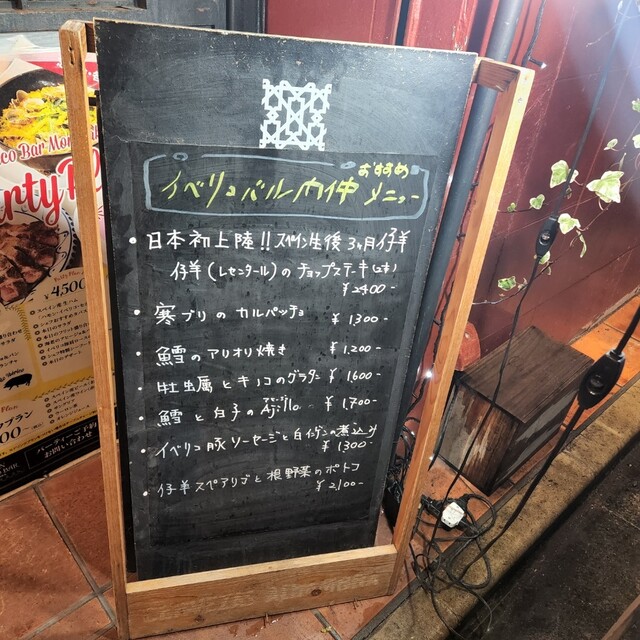 おすすめ
イベリコバル内伸 メニュー
・日本初上陸!! スペイン生後3ヶ月仔羊
仔羊(レセンタール)のチョップステーキ(2本)
¥2400-
・寒ブリの カルパッチョ ¥1300-
・鱈のアリオリ焼き ¥1,200-
・牡蛎とキノコのグラタン ¥1,600-
・鱈と白子の アヒージョ Ajillo ¥1,700-
・イベリコ豚ソーセージと白インゲンの煮込み
¥1300-
・仔羊スペアリブと根野菜のポトフ
¥2,100-
co Bar Mon
arty P
¥4500